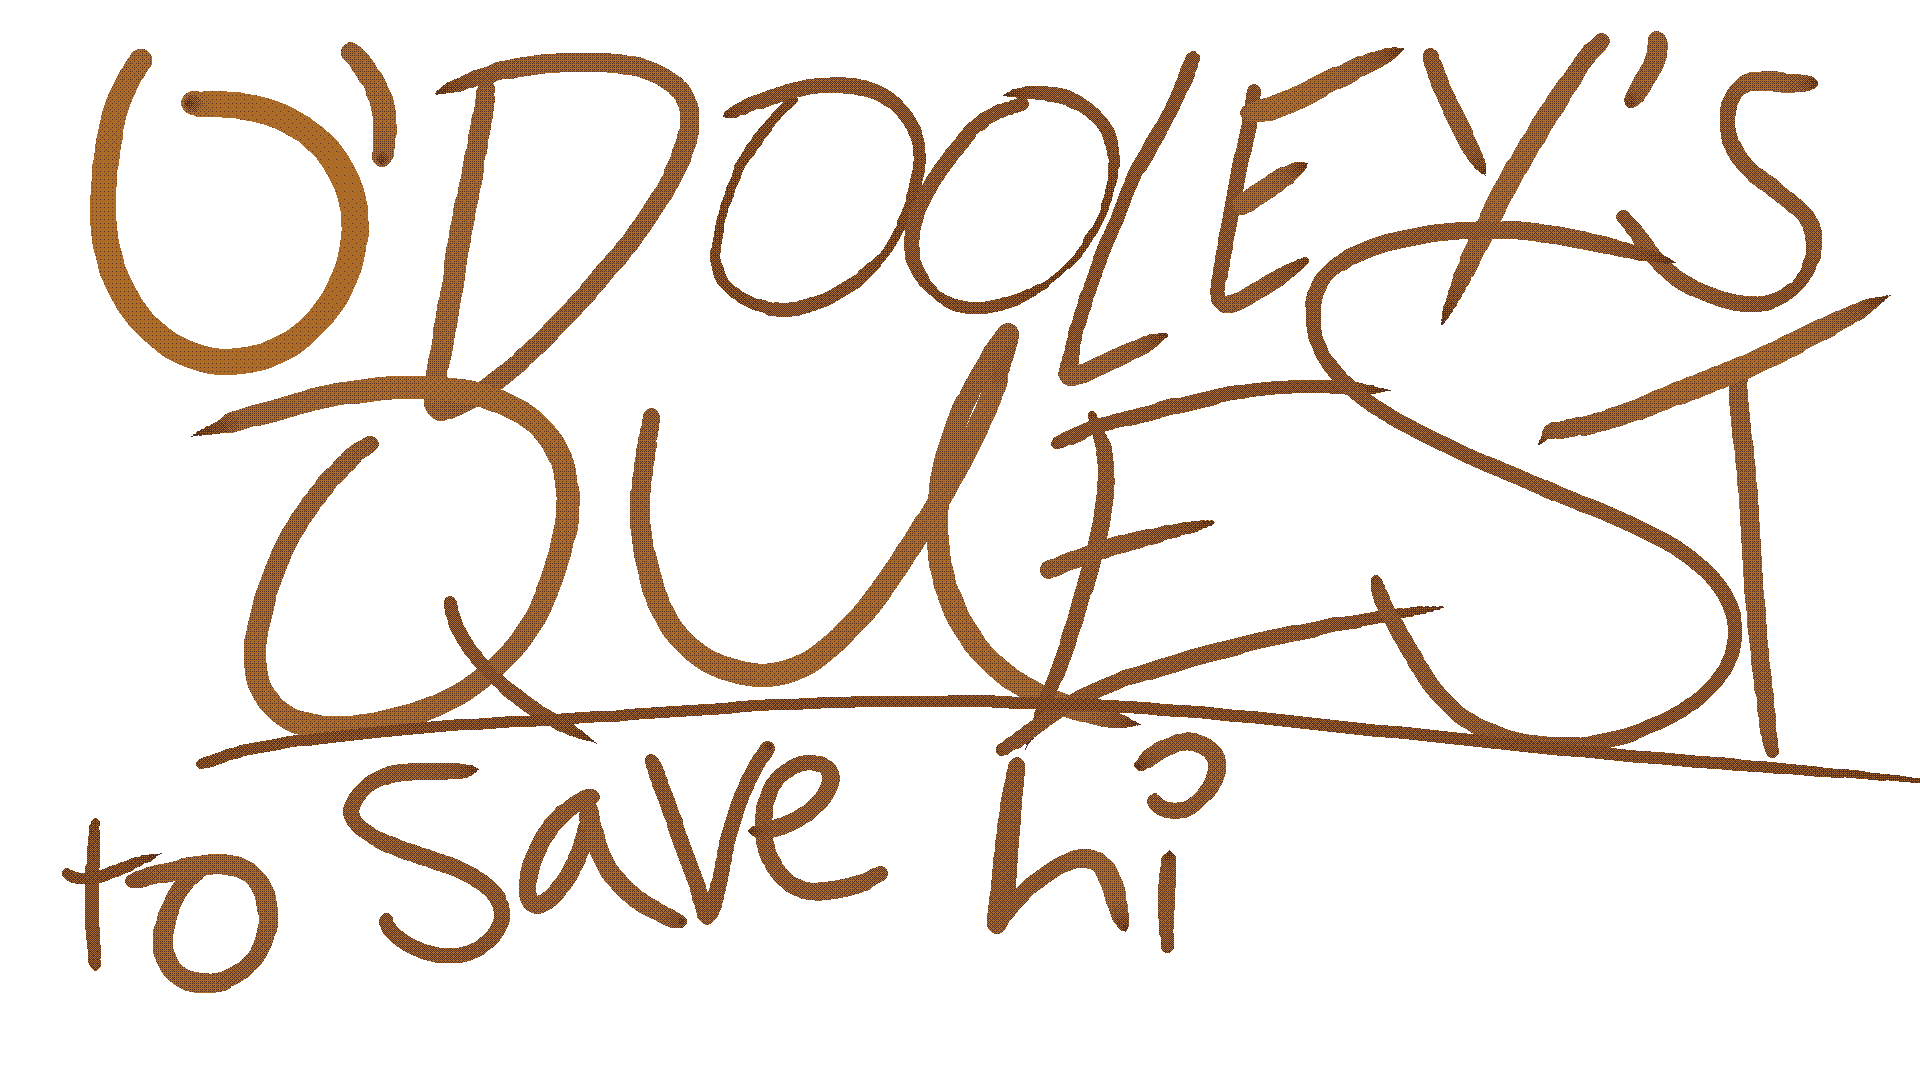 O'DOOLEY'S
QUEST
to save hi